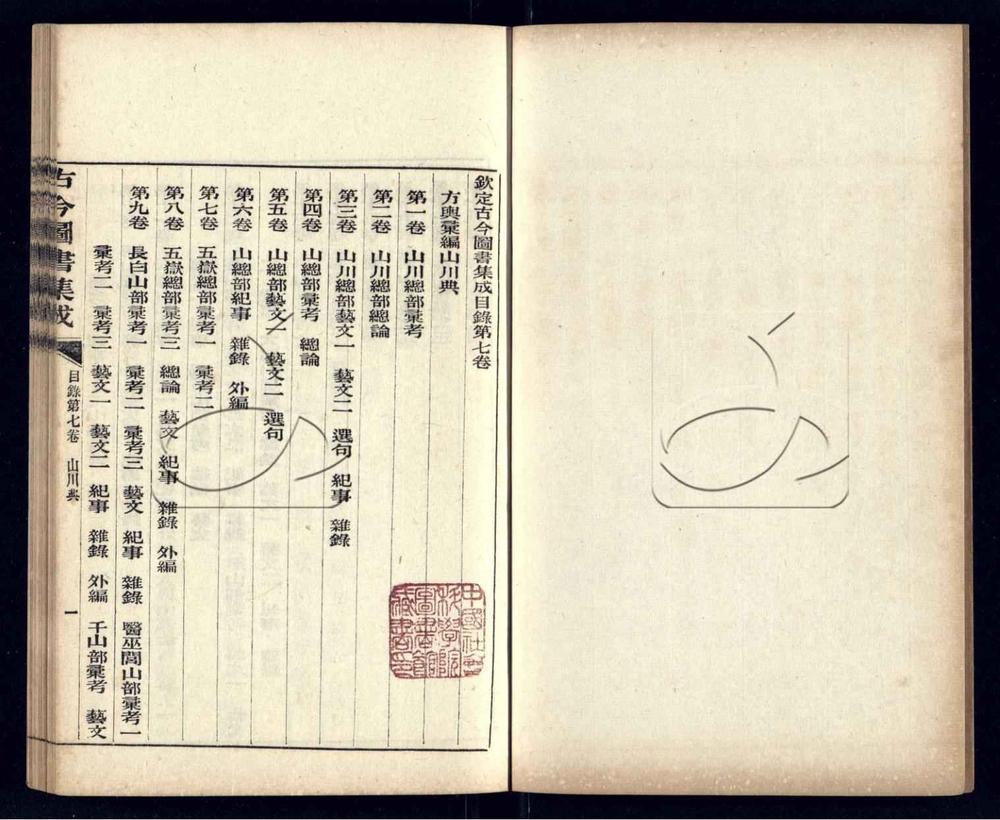 欽定古今圖書集成目錄第七卷
方輿彙編山川典
第一卷 山川總部彙考
第二卷 山川總部總論
第三卷 山川總部藝文一 藝文二 選句 紀事 雜錄
第四卷 山總部彙考 總論
第五卷 山總部藝文一 藝文二 選句
第六卷 山總部紀事 雜錄 外編
第七卷 五嶽總部彙考一 彙考二
第八卷 五嶽總部彙考三 總論 藝文 紀事 雜錄 外編
第九卷 長白山部彙考一 彙考二 彙考三 藝文 紀事 雜錄 醫巫閭山部彙考一
彙考二 彙考三 藝文一 藝文二 紀事 雜錄 外編 千山部彙考 藝文
古今圖書集成
目錄第七卷 山川典
一
中國社會
科學院
圖書館
藏書印